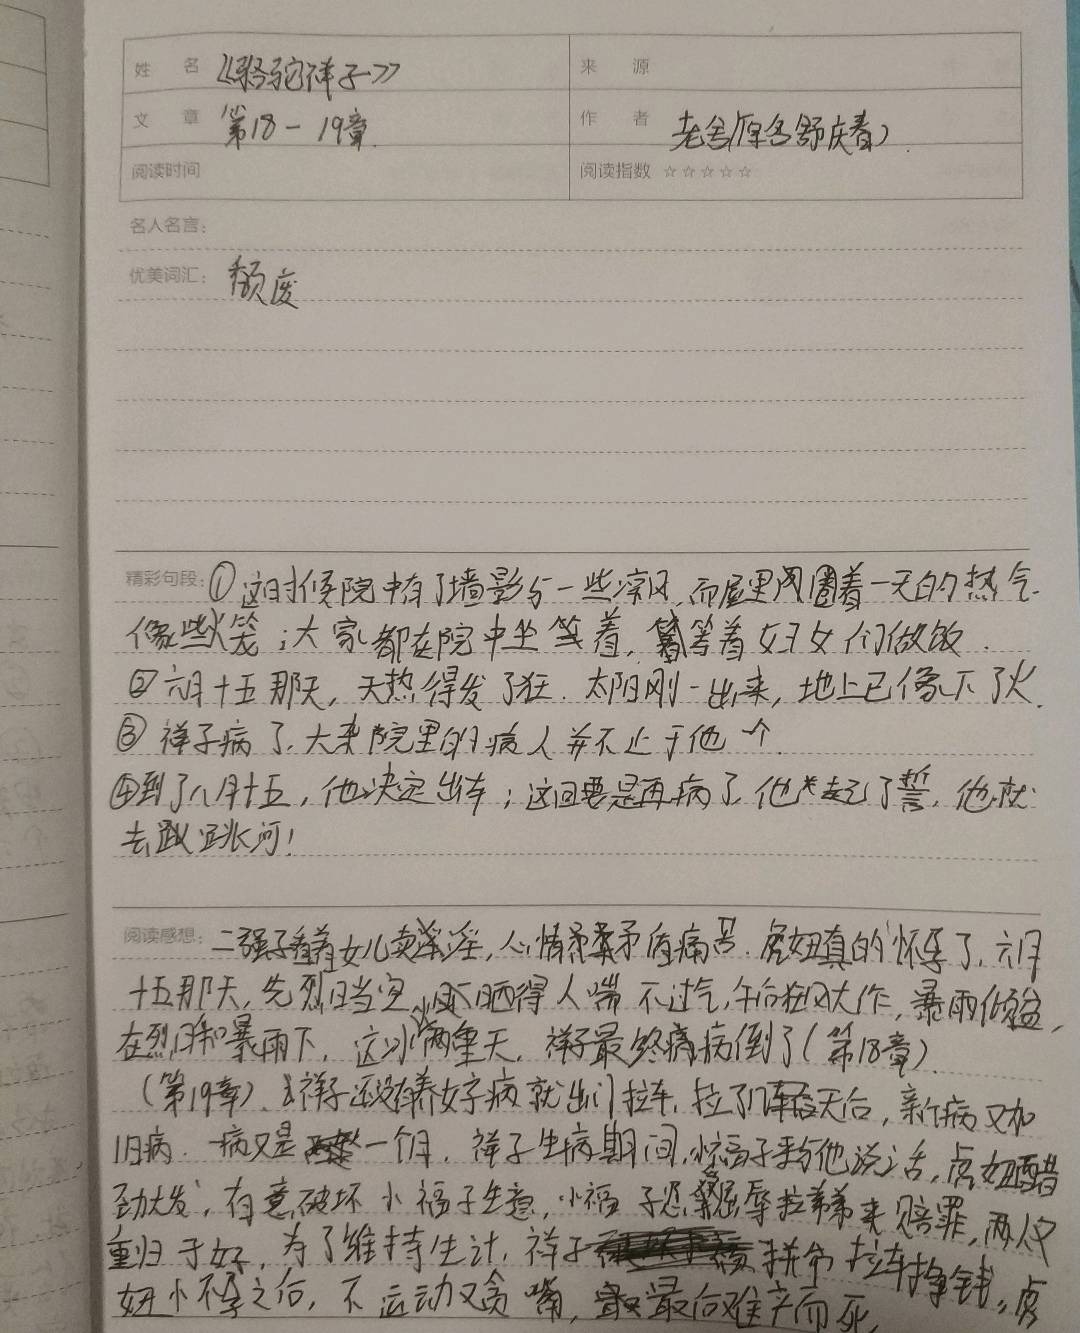 姓 名 《骆驼祥子》 来 源
文 章 第18-19章. 作 者 老舍(原名舒庆春).
阅读时间 阅读指数 ☆☆☆☆☆
名人名言:
优美词汇: 颓废
精彩句段: ①这时候院中有了墙影与一些凉风,而屋里闷圈着一天的热气.
像些火笼;大家都在院中坐等着,等着妇女们做饭.
②六月十五那天,天热得发了狂.太阳刚一出来,地上已像下了火.
③祥子病了.大杂院里的病人并不止于他一个.
④到了八月十五,他决定出车;这回要是再病了,他起了誓,他就
去跳河!
阅读感想: 二强子看着女儿卖淫,心情矛盾痛苦.虎妞真的怀孕了.六月
十五那天,先烈日当空,晒得人喘不过气,午后狂风大作,暴雨倾盆,
在烈日和暴雨下,这冰火两重天,祥子最终病倒了(第18章)
(第19章)、祥子还没有养好病就出门拉车,拉了几天后,新病又加
旧病.一病又是一个月.祥子生病期间,小福子来与他说话,虎妞醋
劲大发,有意破坏小福子生意,小福子忍辱拉弟弟来赔罪,两人又
重归于好,为了维持生计,祥子拼命拉车挣钱,虎
妞怀孕之后,不运动又贪嘴,最后难产而死,